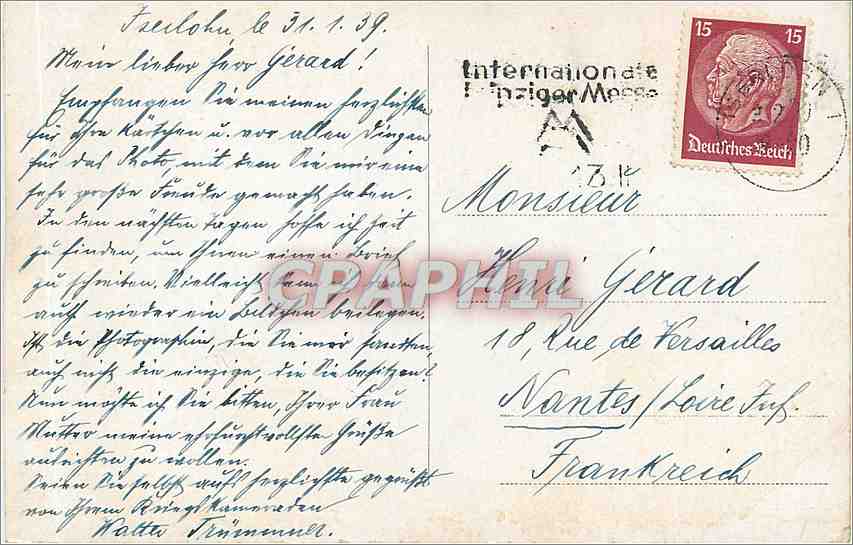 Iserlohn, le 31.1.39.
Mein lieber Herr Gérard!
Empfangen Sie meinen herzlichsten
für Ihre Kärtchen u. vor allen Dingen
für das Photo, mit dem Sie mir eine
sehr große Freude gemacht haben.
In den nächsten Tagen hoffe ich Zeit
zu finden, um Ihnen einen Brief
zu schreiben. Vielleicht kann ich dann
auch wieder ein Bildchen beilegen.
Ist die Photographie, die Sie mir sandten,
auch nicht die einzige, die Sie besitzen?
Nun möchte ich Sie bitten, Ihrer Frau
Mutter meine ehrfurchtvollsten Grüße
ausrichten zu wollen.
Seien Sie selbst aufs herzlichste gegrüßt
von Ihrem Kriegskameraden
Walter
Internationale
Leipziger Messe
M
15 15
Deutsches Reich
Monsieur
Henri Gérard
18, Rue de Versailles
Nantes/Loire Inf.
Frankreich
CPAPHIL